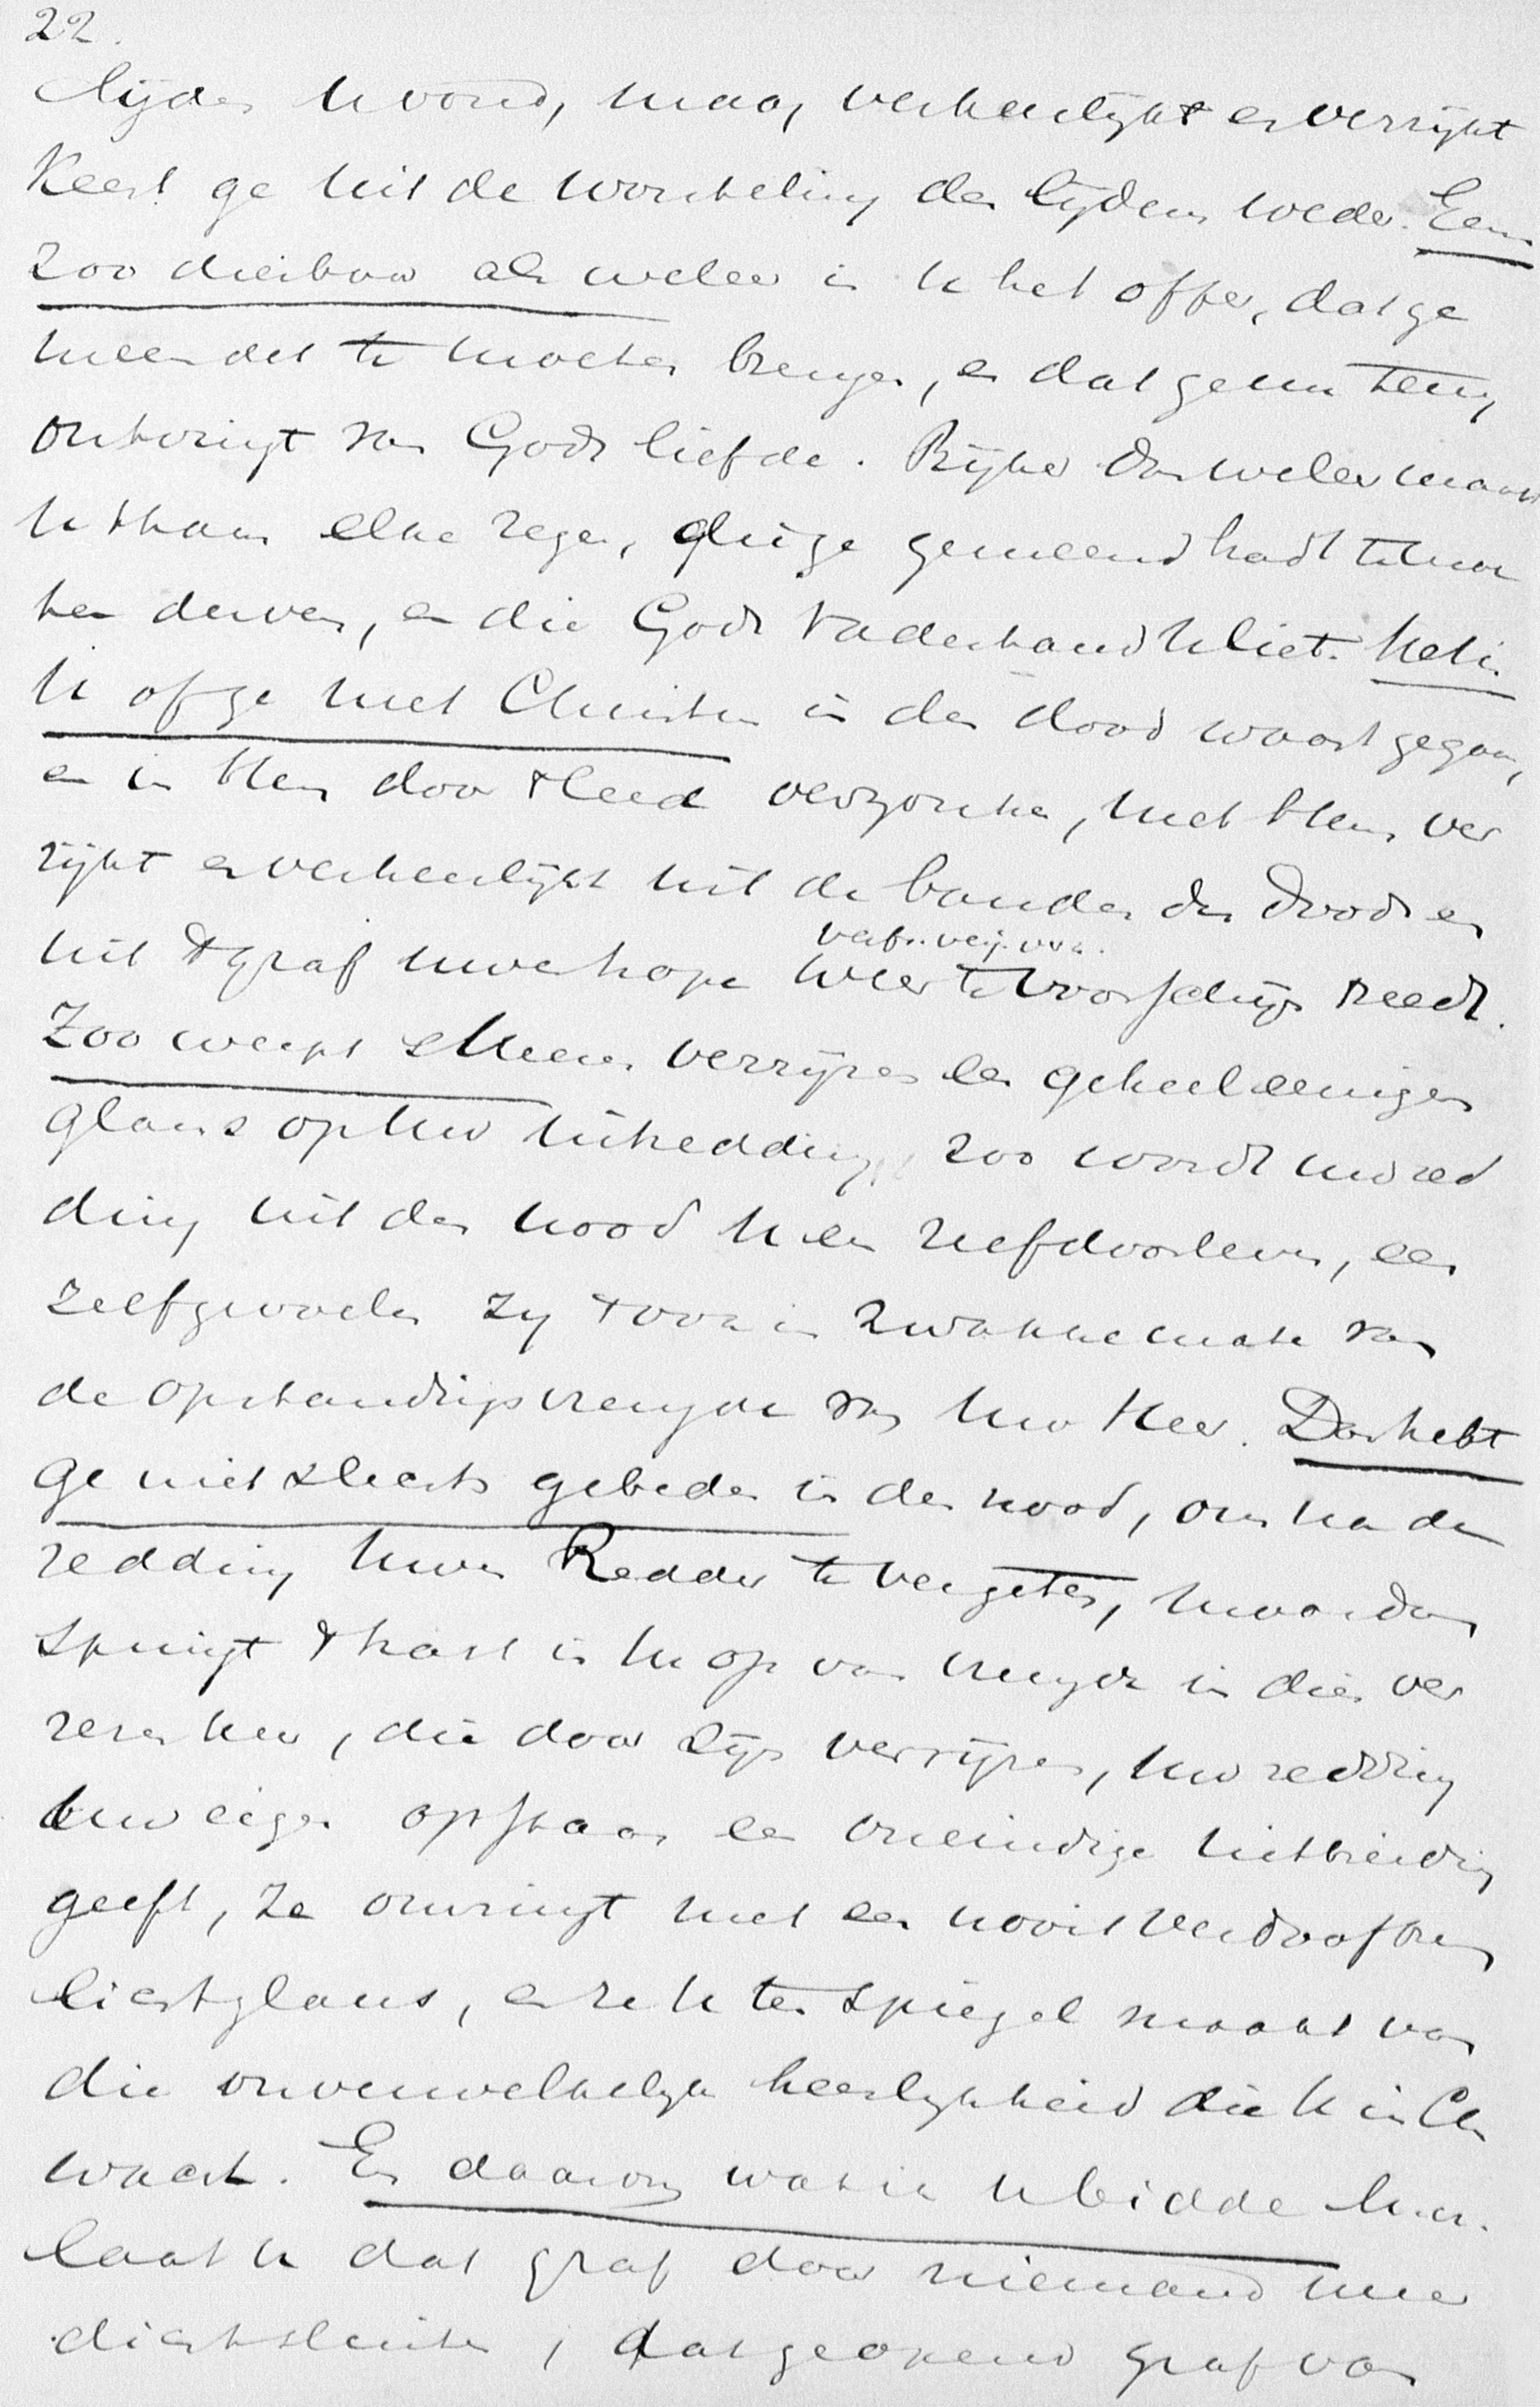 22.
lijden u vond, maar verheerlijkt en verrijkt
Keert ge uit de worsteling des lijdens weder. Eens
zoo dierbaar als weleer is u het offer, dat ge
meendet te moeten brengen, en dat ge nu terug
ontvingt van Gods liefde. Rijker dan weleer maakt
u thans elke zegen, dien ge gemeend hadt te moe
ten derven, en die Gods Vaderhand u liet. Het is
u of ge met Christus in den dood waart gegaan,
en in Hem door 't leed verzonken, met Hem ver
rijkt en verheerlijkt uit de banden des doods en
verb. verz. voor.
uit 't graf uwer hope weer te voorschijn treedt.
Zoo werpt 's Heeren verrijzen een geheel eenigen
glans op uw uitredding, zoo wordt uw red
ding uit den nood u een zelfdoorleven, een
zelfgevoelen zij 't ook in zwakke mate van
de opstandingsvreugde van uw Heer. Dan hebt
ge niet slechts gebeden in den nood, om na de
redding uwen Redder te vergeten, maar dan
springt 't hart in u op van vreugde in dien ver
rezen Heer, die door Zijn verrijzen, uw redding
uw eigen opstaan een oneindige uitbreiding
geeft, ze omringt met een nooit verdoofbren
lichtglans, en ze u ten spiegel maakt van
die onverwelkelijke heerlijkheid die u in Chr
wacht. En daarom wat ik u bidde M. H.
laat u dat graf door niemand meer
dichtsluiten, dat geopend graf van